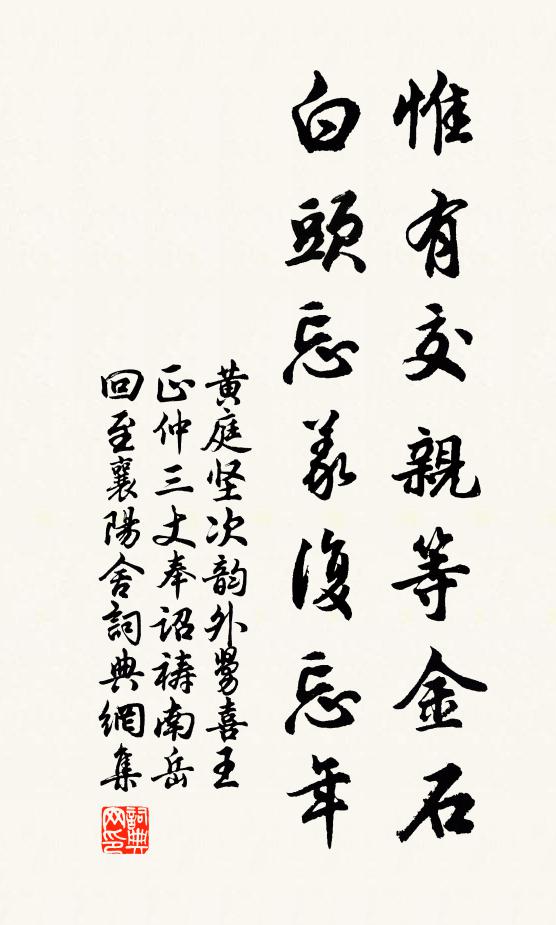 惟有交親等金石
白頭忘義復忘年
黄庭坚次韵外舅喜王
正仲三丈奉詔禱南岳
回至襄陽舍詞典網集
詞典网印